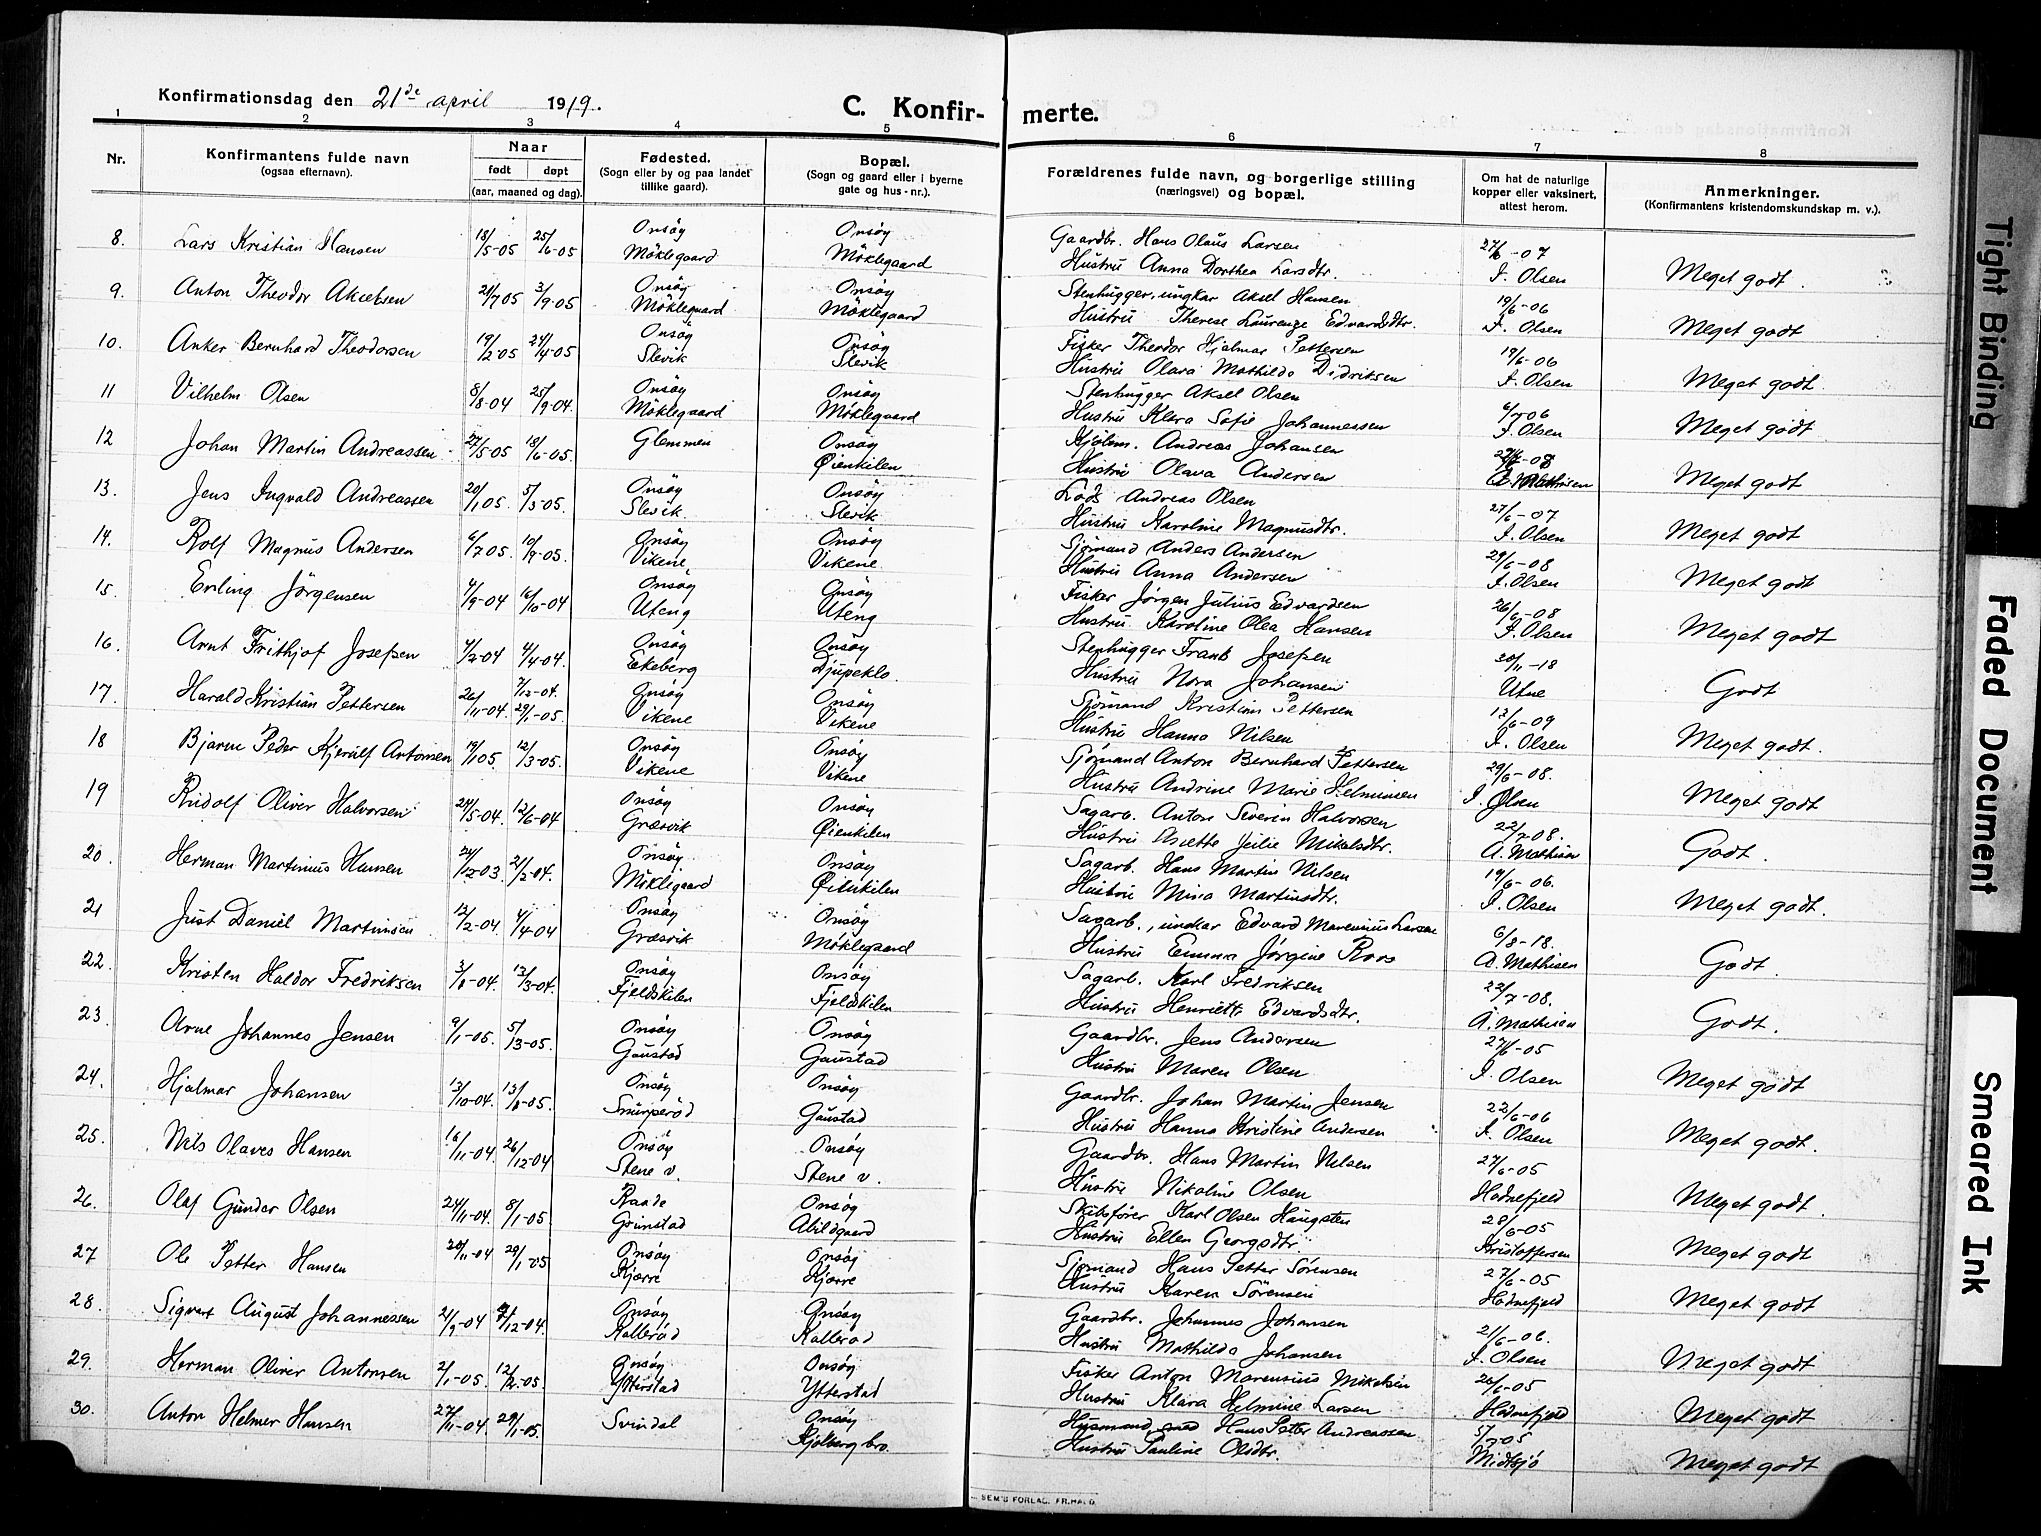 Konfirmationsdag den 21de april 1919.
C. Konfir-
merte.
1 2 3 4 5 6 7 8
Nr.
Konfirmantens fulde navn
(ogsaa efternavn).
Naar
født døpt
(aar, maaned og dag).
Fødested.
(Sogn eller by og paa landet
tillike gaard).
Bopæl.
(Sogn og gaard eller i byerne
gate og hus-nr.).
Forældrenes fulde navn, og borgerlige stilling
(næringsvei) og bopæl.
Om hat de naturlige
kopper eller vaksinert,
attest herom.
Anmerkninger.
(Konfirmantens kristendomskundskap m. v.).
8. Lars Kristian Hansen 18/5-05 25/6-05 Onsøy Møklegaard Onsøy Møklegaard Gaardbr. Hans Olaus Larsen
Hustru Anna Dorthea Larsdtr. 27/6-07 I. Olsen Meget godt.
9. Anton Theodor Akselsen 21/7 05 3/9-05 Onsøy Møklegaard Onsøy Møklegaard Stenhugger, ungkar Aksel Hansen
Hustru Therese Laurenze Edvardsdtr. 19/6-06 I. Olsen Meget godt
10. Anker Bernhard Theodorsen 19/2-05 24/4-05 Onsøy Slevik Onsøy Slevik Fisker Theodor Hjalmar Pettersen
Hustru Olava Mathilde Didriksen 19/6-06 I. Olsen Meget godt.
11 Vilhelm Olsen 8/8-04 25/9-04. Onsøy Møklegaard Onsøy Møklegaard Stenhugger Aksel Olsen
Hustru Klara Sofie Johannessen 6/7 06 I. Olsen Meget godt
12 Johan Martin Andreassen 27/5-05 18/6-05. Glemmen Onsøy Øienkilen Kjølm. Andreas Johansen
Hustru Olava Andersen A. Mathisen Meget godt
13. Jens Ingvald Andreassen 20/1 05. 5/3-05. Onsøy Slevik. Onsøy Slevik Lods Andreas Olsen
Hustru Karoline Magnusdtr. 27/6-07 I. Olsen Meget godt
14. Rolf Magnus Andersen 6/7 05. 10/9-05. Onsøy Vikene, Onsøy Vikene Sjømand Anders Andersen
Hustru Anna Andersen 29/6-08 I. Olsen Meget godt
15. Erling Jörgensen 4/9-04 16/10-04 Onsøy Uteng Onsøy Uteng Fisker Jørgen Julius Edvardsen
Hustru Karoline Olea Hansen 26/6-08 I. Olsen Meget godt
16. Arnt Frithjof Josefsen 4/2-04 4/4-04. Onsøy Ekeberg Onsøy Djupeklo. Stenhugger Frants Josefsen
Hustru Nora Johansen 30/11-18 Utne Godt
17. Harald Kristian Pettersen 26/11-04. 7/12-04. 29/1-05. Onsøy Vikene Onsøy Vikene Sjømand Kristian Pettersen
Hustru Hanna Nilsen 12/6-09 I. Olsen Meget godt.
18 Bjarne Peder Kjerulf Antonsen 19/1 05. 12/3-05. Onsøy Vikene Onsøy Vikene Sjømand Anton Bernhard Pettersen
Hustru Andrine Marie Helminsen 29/6-08. I. Olsen Meget godt
19 Rudolf Oliver Halvorsen 24/5-04. 12/6-04 Onsøy Græsvik Onsøy Øienkilen Sagarb. Anton Severin Halvorsen
Hustru Mikelsdtr. 22/7-08. A. Mathisen Godt.
20. Herman Martinius Hansen 24/12-03. 21/2-04. Onsøy Møklegaard Onsøy Øienkilen Sagarb. Hans Martin Nilsen
Hustru Mina Martinsdtr. 19/6-06. I. Olsen Meget godt.
21 Just Daniel Martinsen 12/2-04. 4/4-04 Onsøy Græsvik Onsøy Møklegaard Sagarb., ungkar Edvard Marenius Larsen
Hustru Emma Jørgine Roos 6/8-18. A. Mathisen Godt.
22. Kristen Haldor Fredriksen 3/1-04. 13/3-04. Onsøy Fjeldskilen Onsøy Fjeldskilen Sagarb. Karl Fredriksen
Hustru Henriette Edvardsdtr. 22/7-08. A. Mathisen Godt.
23. Arne Johannes Jensen 9/1-05. 5/3-05. Onsøy Gaustad Onsøy Gaustad Gaardbr. Jens Andersen
Hustru Maren Olsen 27/6-05 I. Olsen Meget godt
24. Hjalmar Johansen 13/10-04. Onsøy Smurperød Onsøy Gaustad Gaardbr. Johan Martin Jensen
Hustru Hanna Kristine Andersen 22/6-06 I. Olsen Meget godt.
25. Nils Olaves Hansen 16/11-04. 26/12-04 Onsøy Stene v. Onsøy Stene v. Gaardbr. Hans Martin Nilsen
Hustru Nikoline Olsen 27/6-05 Hodnefjeld Meget godt.
26. Olaf Gunder Olsen 24/11-04. 8/1-05 Raade Grimstad Onsøy Abildgaard Skibsfører Karl Olsen Haugsten
Hustru Ellen Georgsdtr. 28/6-05 Kristoffersen Meget godt
27 Ole Petter Hansen 20/11-04 29/1-05 Onsøy Kjærre Onsøy Kjærre Sjømand Hans Petter Sørensen
Hustru Karen Sørensen 27/6-05 Hodnefjeld Meget godt
28. Sigvart August Johannessen 21/9-04 Onsøy Kallerød Onsøy Kallerød Gaardbr. Johannes Johansen
Hustru Mathilda Johansen 21/6-06. I. Olsen Meget godt
29. Herman Oliver Antonsen 2/1-05. 12/2-05. Onsøy Ytterstad Onsøy Ytterstad Fisker Anton Marensius Mikelsen
Hustru Klara Helmine Larsen 26/6-05 Hodnefjeld Meget godt
30. Anton Helmer Hansen 27/11-04. 29/1-05. Svindal Onsøy Kjølberg bro. Husmand Hans Petter Andreassen
Hustru Pauline Olsdtr. 5/7-05 Midtsjø Meget godt
SEM'S FORLAG, FR.HALD
Tight Binding
Faded Document
Smeared Ink